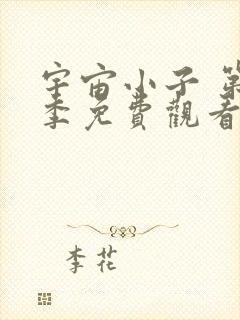 宇宙小子 第
季免費觀看
李花